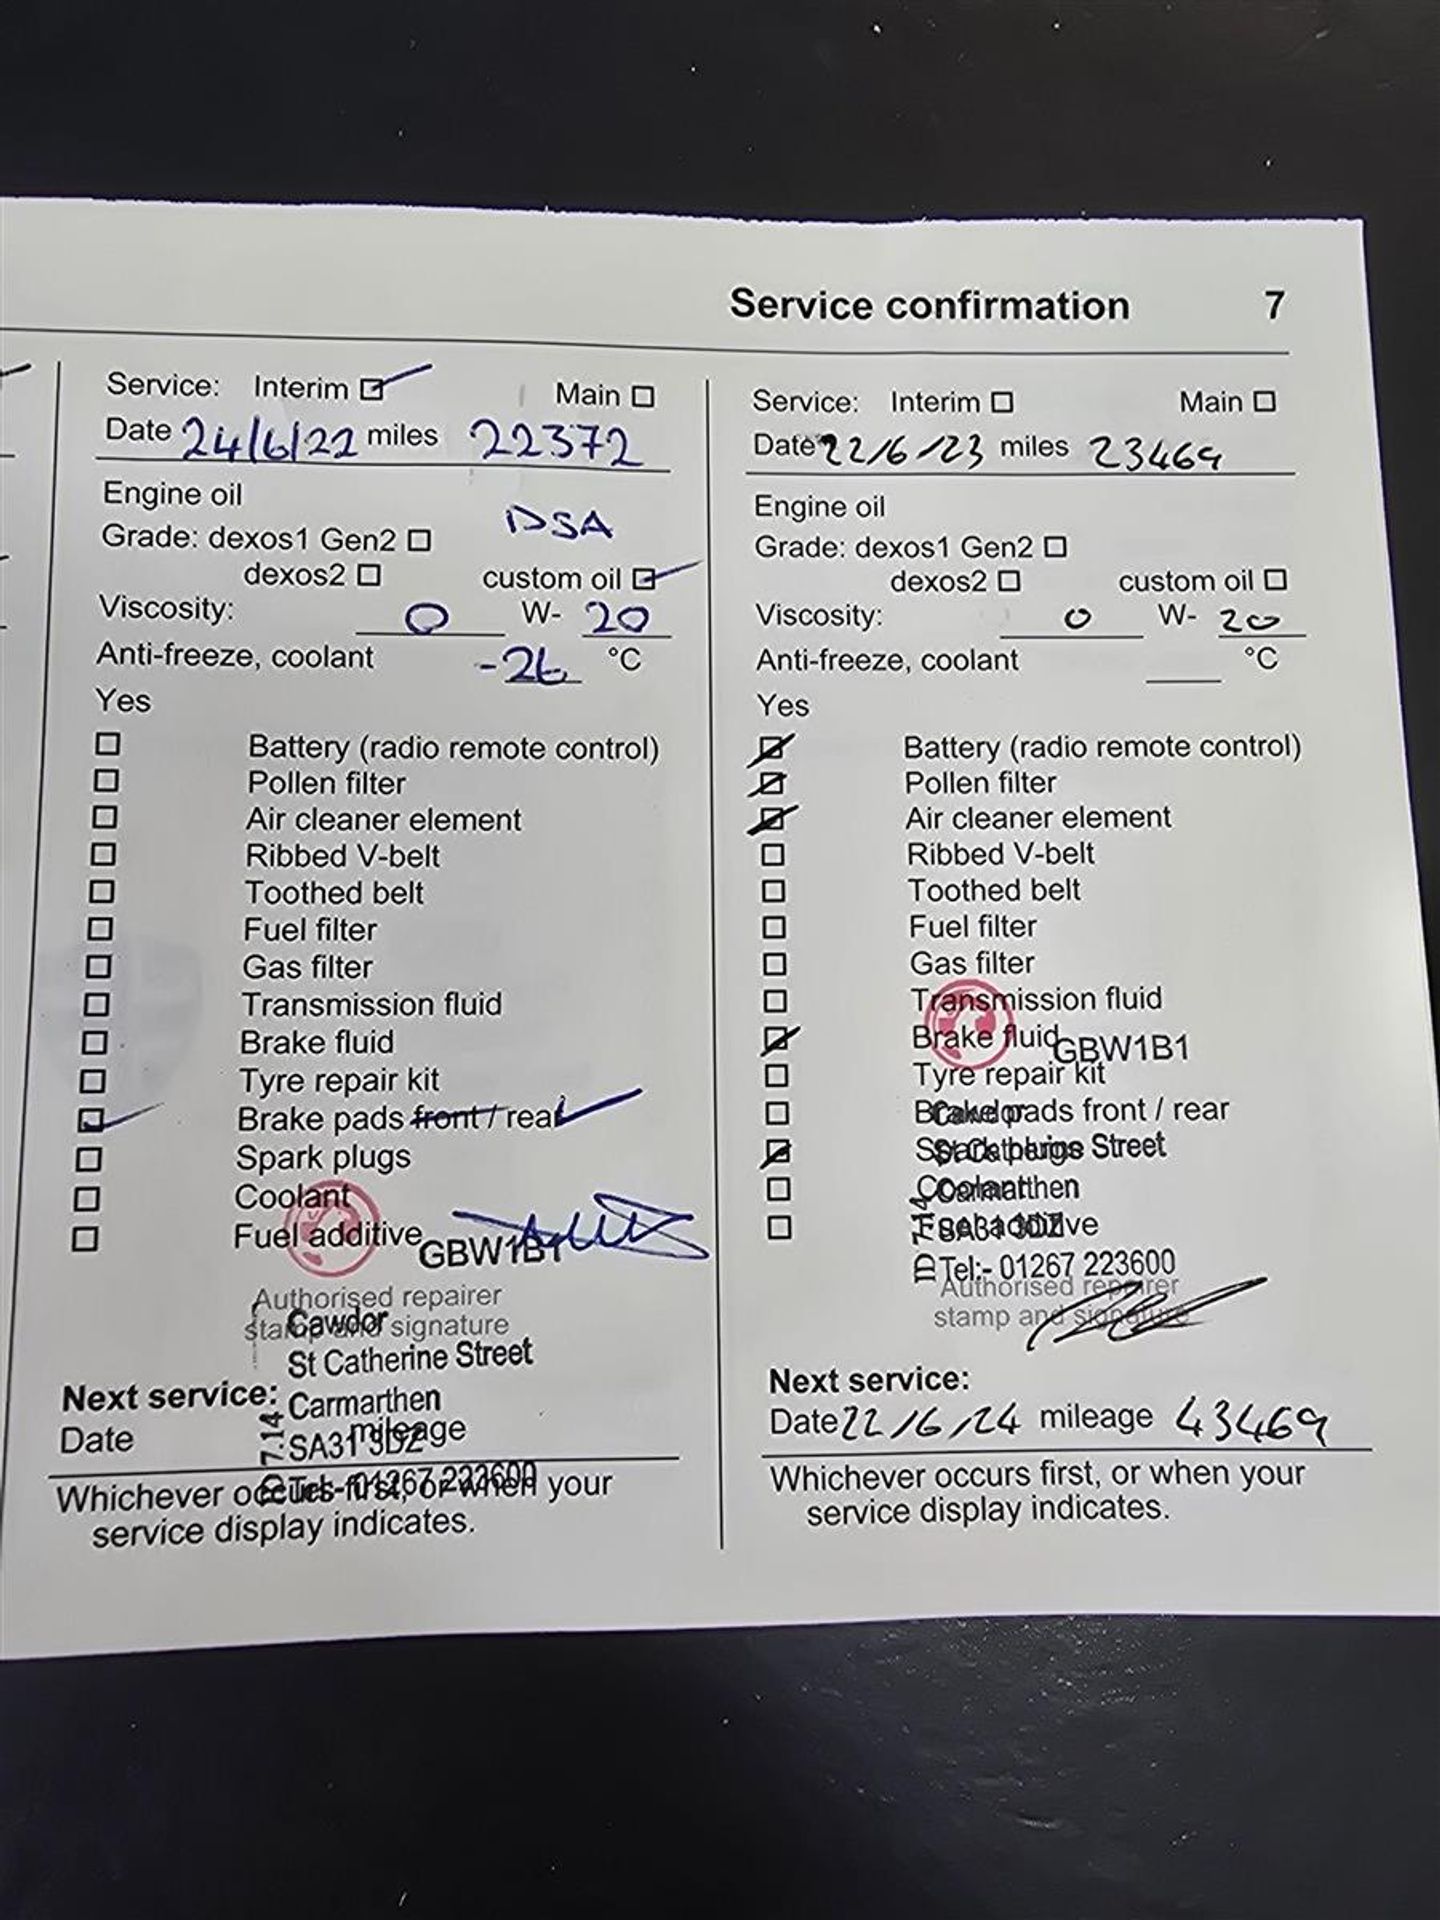 Service confirmation 7
Service: Interim Main
Date 24/6/22 miles 22372
Engine oil
DSA
Grade: dexos1 Gen2
dexos2 custom oil
Viscosity: 0 W- 20
Anti-freeze, coolant -26 °C
Yes
Battery (radio remote control)
Pollen filter
Air cleaner element
Ribbed V-belt
Toothed belt
Fuel filter
Gas filter
Transmission fluid
Brake fluid
Tyre repair kit
Brake pads front / rear
Spark plugs
Coolant
Fuel additive
GBW1B1
Authorised repairer
stamp and signature
Cawdor
St Catherine Street
Carmarthen
SA31 3DZ
Tel:- 01267 223600
7.14
Next service:
Date mileage
Whichever occurs first, or when your
service display indicates.
Service: Interim Main
Date 22/6/23 miles 23469
Engine oil
Grade: dexos1 Gen2
dexos2 custom oil
Viscosity: 0 W- 20
Anti-freeze, coolant °C
Yes
Battery (radio remote control)
Pollen filter
Air cleaner element
Ribbed V-belt
Toothed belt
Fuel filter
Gas filter
Transmission fluid
Brake fluid
GBW1B1
Tyre repair kit
Brake pads front / rear
Spark plugs
Coolant
Fuel additive
Cawdor
St Catherine Street
Carmarthen
SA31 3DZ
Tel:- 01267 223600
Authorised repairer
stamp and signature
Next service:
Date 22/6/24 mileage 43469
Whichever occurs first, or when your
service display indicates.